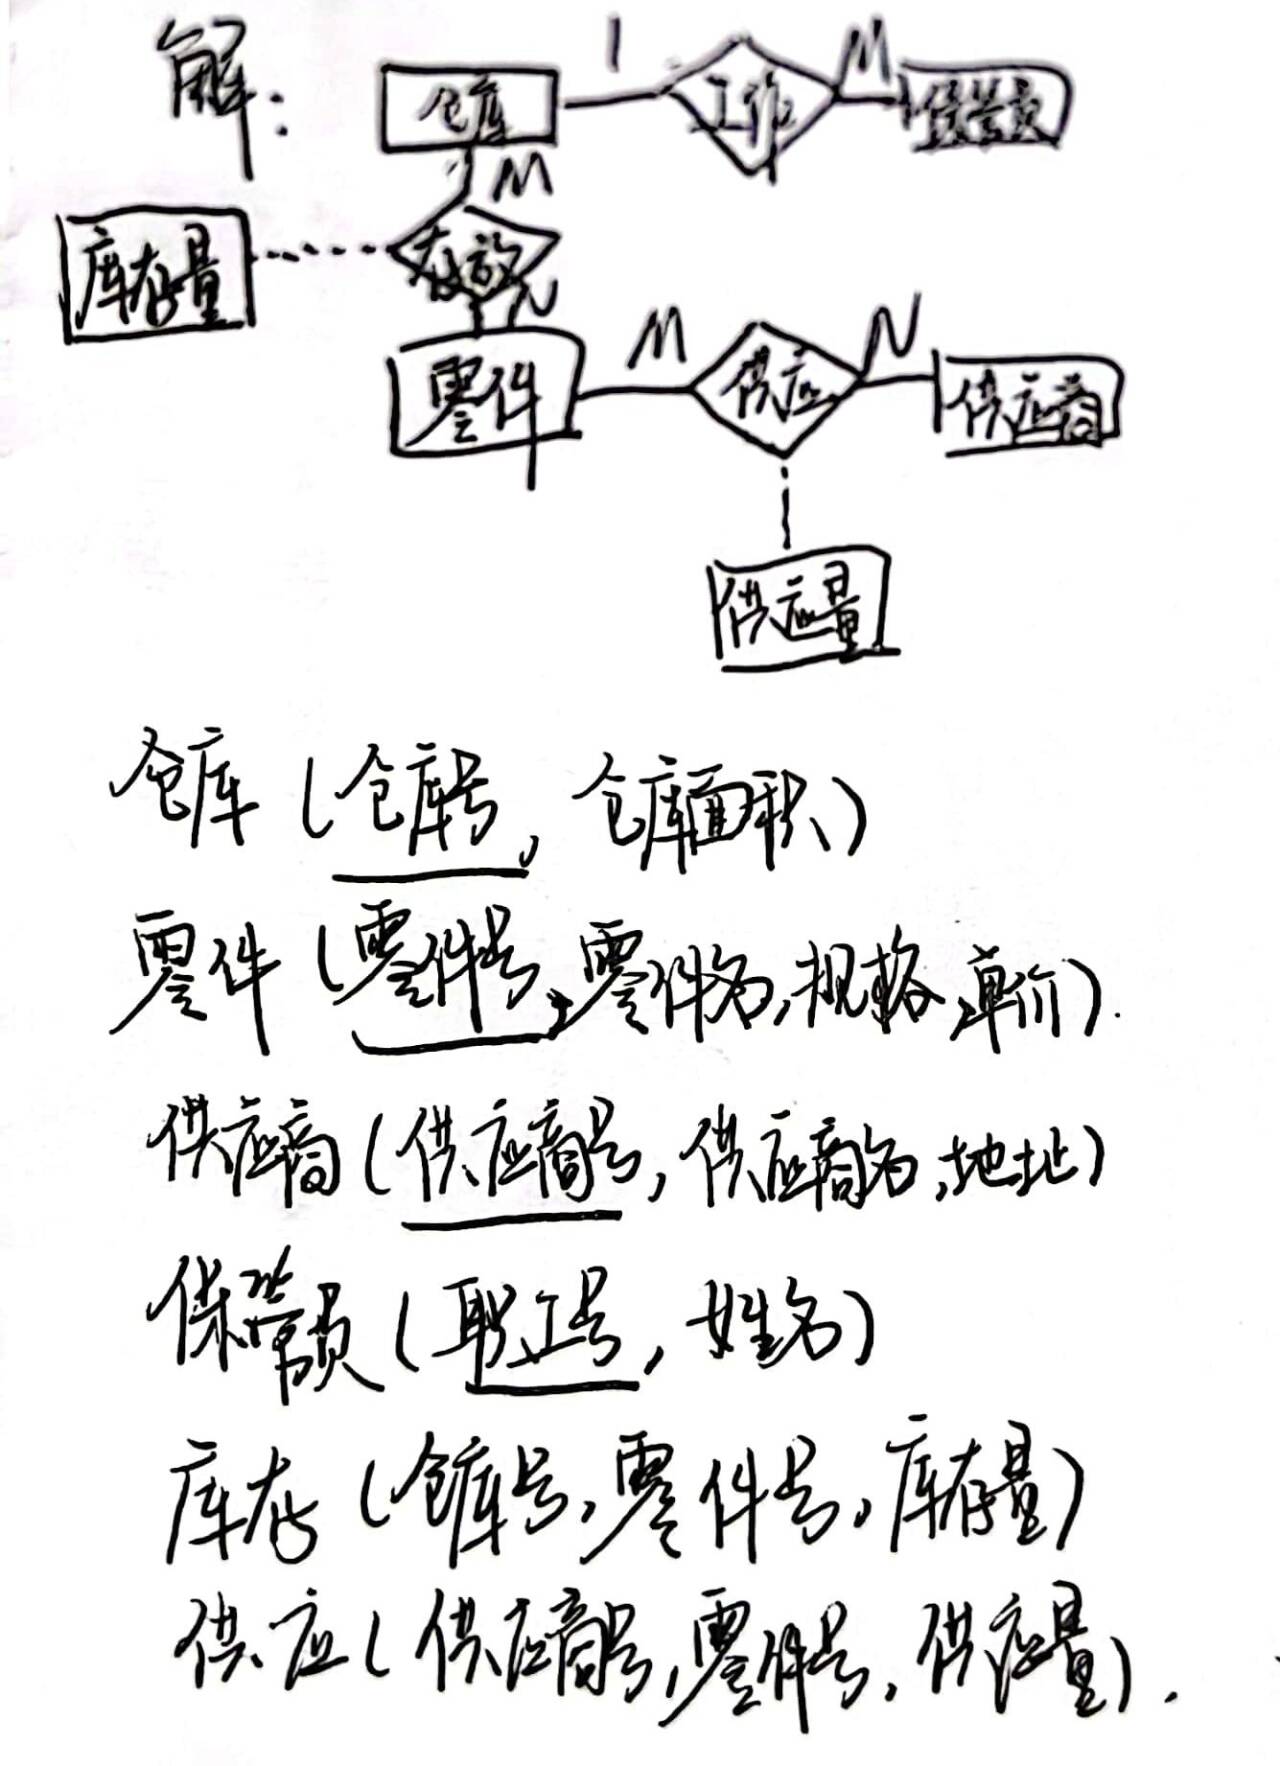 解:
仓库 1 工作 M 保管员
M
库存量 存放
N
零件 M 供应 N 供应商
供应量
仓库(仓库号,仓库面积)
零件(零件号,零件名,规格,单价).
供应商(供应商号,供应商名,地址)
保管员(职工号,姓名)
库存(仓库号,零件号,库存量)
供应(供应商号,零件号,供应量).